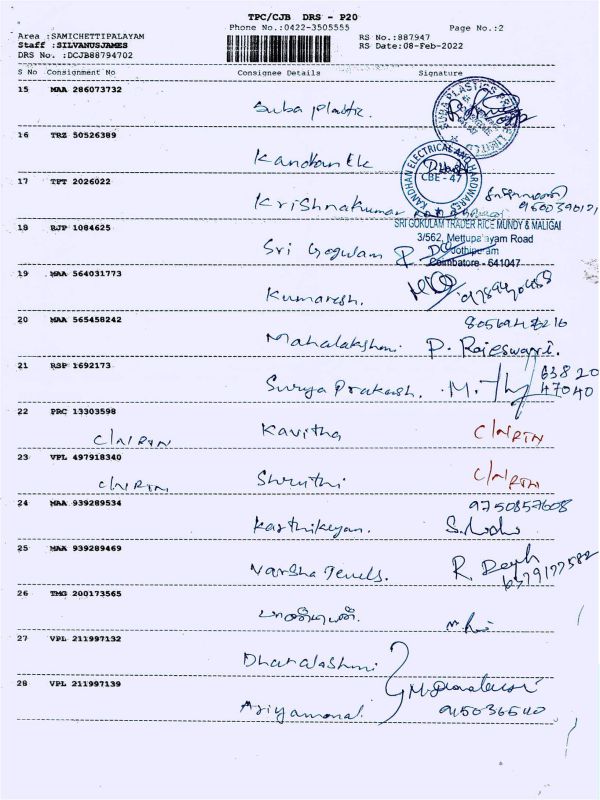 TPC/CJB DRS - P20
Phone No.:0422-3505555 Page No.:2
Area :SAMICHETTIPALAYAM RS No.:887947
Staff :SILVANUSJAMES RS Date:08-Feb-2022
DRS No. :DCJB88794702
S No Consignment No Consignee Details Signature
15 MAA 286073732
Suba plastic.
SUBA PLASTICS
16 TRZ 50526389
Kandhan Elc
KANDHAN ELECTRICAL AND HARDWARES
CBE - 47
17 TPT 2026022
Krishnakumar
SRI GOKULAM TRADER RICE MUNDY & MALIGAI
3/562, Mettupalayam Road
Coimbatore - 641047
18 RJP 1084625
Sri Gogulam
19 MAA 564031773
Kumaresh.
20 MAA 565458242
Mahalakshmi. P. Rajeswari.
21 RSP 1692173
Surya Prakash. 63820
47040
22 PRC 13303598
C/N/RTN Kavitha C/N/RTN
23 VPL 497918340
C/N/RTN Shruthi C/N/RTN
24 MAA 939289534
9750857608
Karthikeyan.
25 MAA 939289469
Varsha Jewels.
26 TMG 200173565
27 VPL 211997132
Dhanalashmi
28 VPL 211997139
Ariyamanal